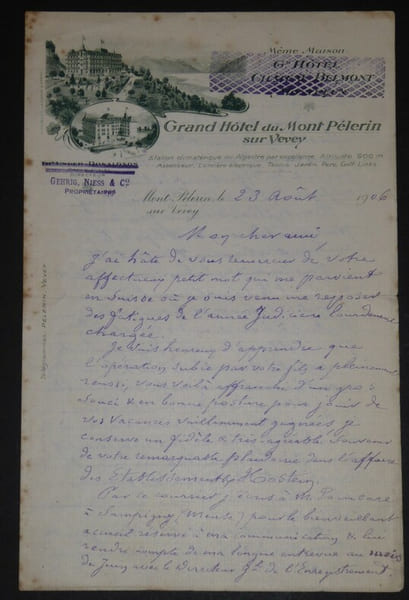 Même Maison
Gd HÔTEL
CHÂTEAU BELMONT
Grand Hôtel du Mont Pélerin
sur Vevey
Station climatérique du Léman
Altitude 900 m
Ascenseur. Lumière électrique. Tennis. Jardin. Parc. Golf Links.
DIRECTEUR
GEHRIG, NIESS & Co
PROPRIÉTAIRES
Mont Pélerin, le 23 Août 1906
sur Vevey
Télégrammes: PÉLERIN-VEVEY
Mon cher ami,
J'ai hâte de vous remercier de votre
affectueux petit mot qui me parvient
en Suisse où je suis venu me reposer
des fatigues de l'année Judiciaire lourdement
chargée.
Je suis heureux d'apprendre que
l'opération subie par votre fils a pleinement
réussi, vous voilà affranchi d'un gros
souci & en bonne posture pour jouir de
vos vacances vaillamment gagnées, je
conserve un fidèle & très agréable souvenir
de votre remarquable plaidoirie dans l'affaire
des Etablissements Hostein.
Par ce courrier j'écris à M. Poincaré
à Sampigny (Meuse) pour le bienveillant
accueil réservé à ma communication & lui
rendre compte de ma longue entrevue au mois
de Juin avec le Directeur Gl. de l'Enregistrement